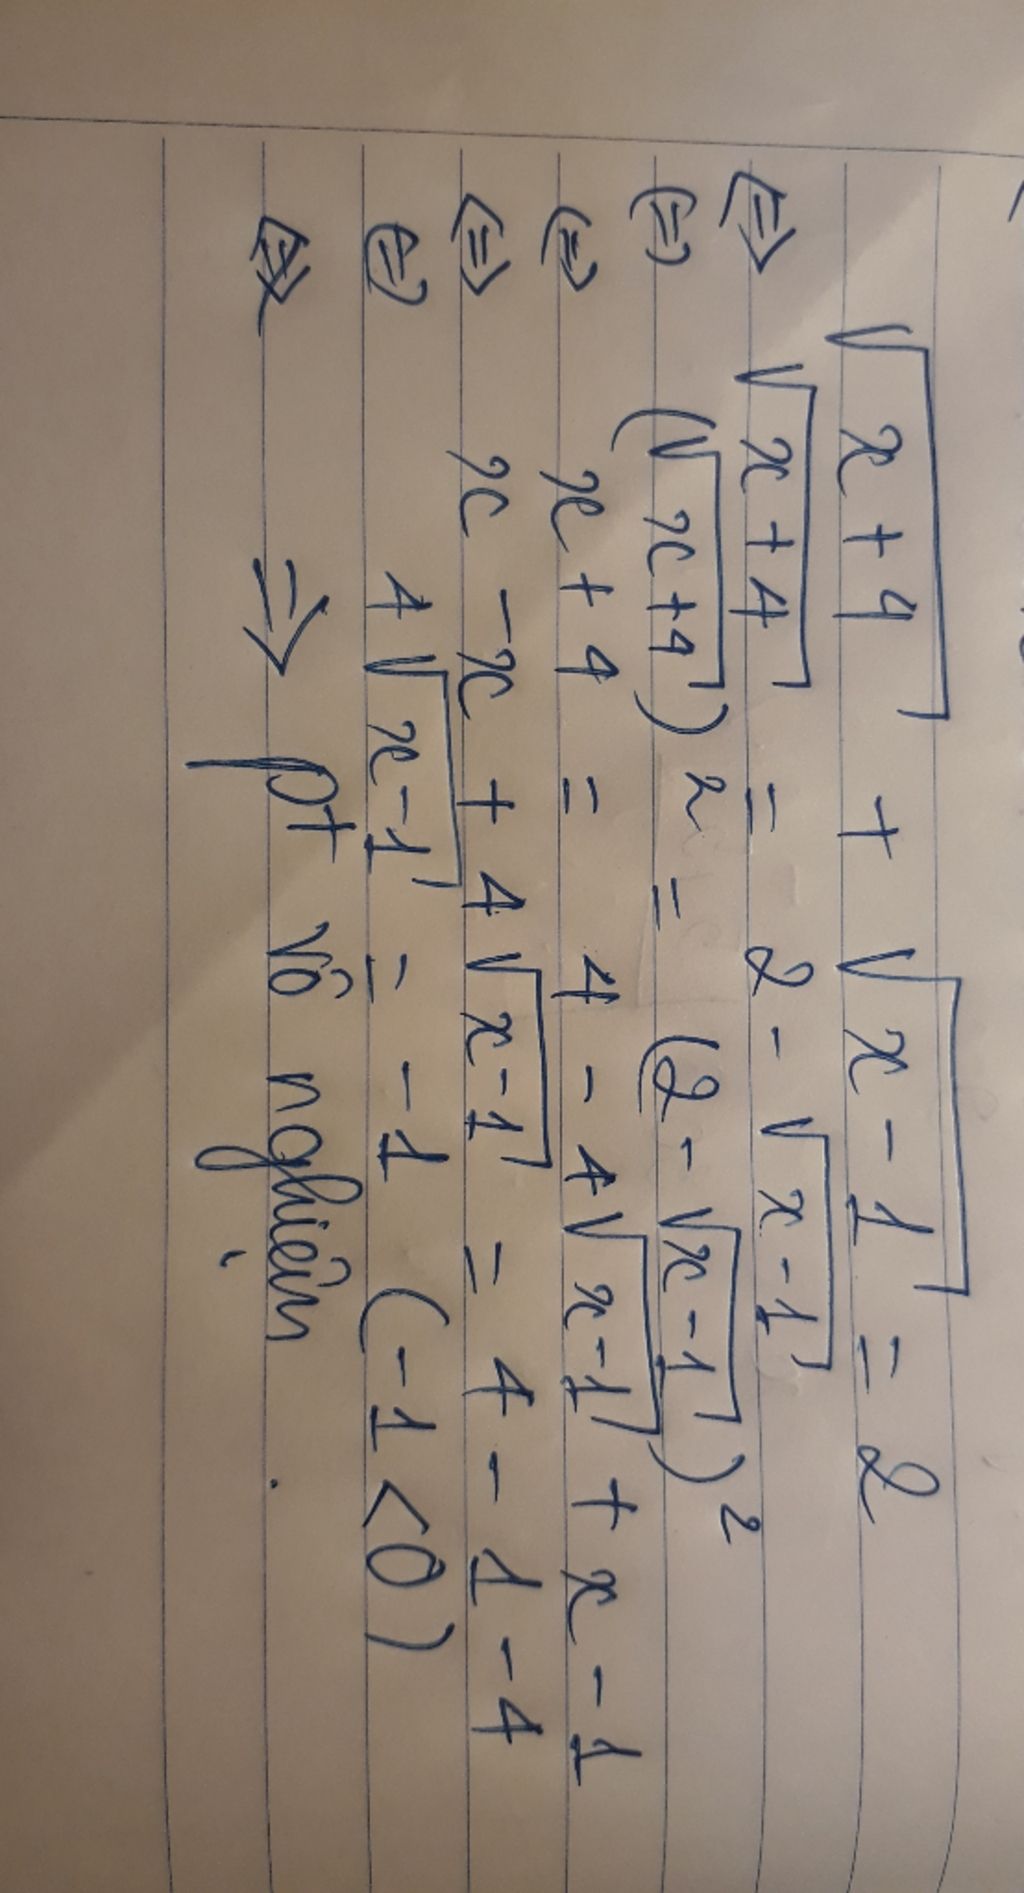 √(x+4) + √(x-1) = 2
⇔ √(x+4) = 2 - √(x-1)
⇔ (√(x+4))² = (2 - √(x-1))²
⇔ x+4 = 4 - 4√(x-1) + x - 1
⇔ x - x + 4√(x-1) = 4 - 1 - 4
⇔ 4√(x-1) = -1 (-1 < 0)
⇒ pt vô nghiệm.